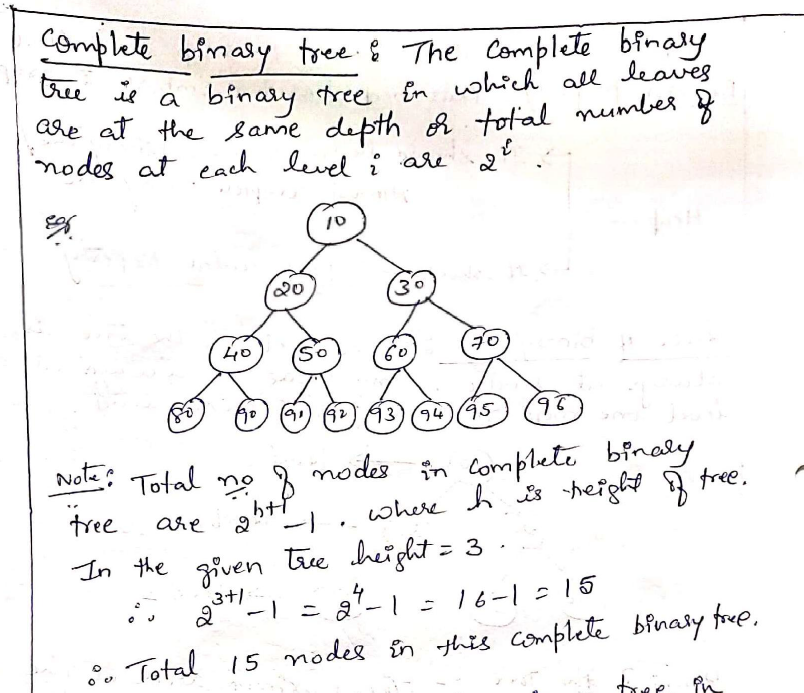 Complete binary tree : The Complete binary
tree is a binary tree in which all leaves
are at the same depth or total number of
nodes at each level i are 2^i .
eg:
10
20 30
40 50 60 70
80 90 91 92 93 94 95 96
Note: Total no of nodes in complete binary
tree are 2^h+1 -1 . where h is height of tree.
In the given tree height = 3 .
∴ 2^3+1 -1 = 2^4 -1 = 16-1 = 15
∴ Total 15 nodes in this complete binary tree.
tree in